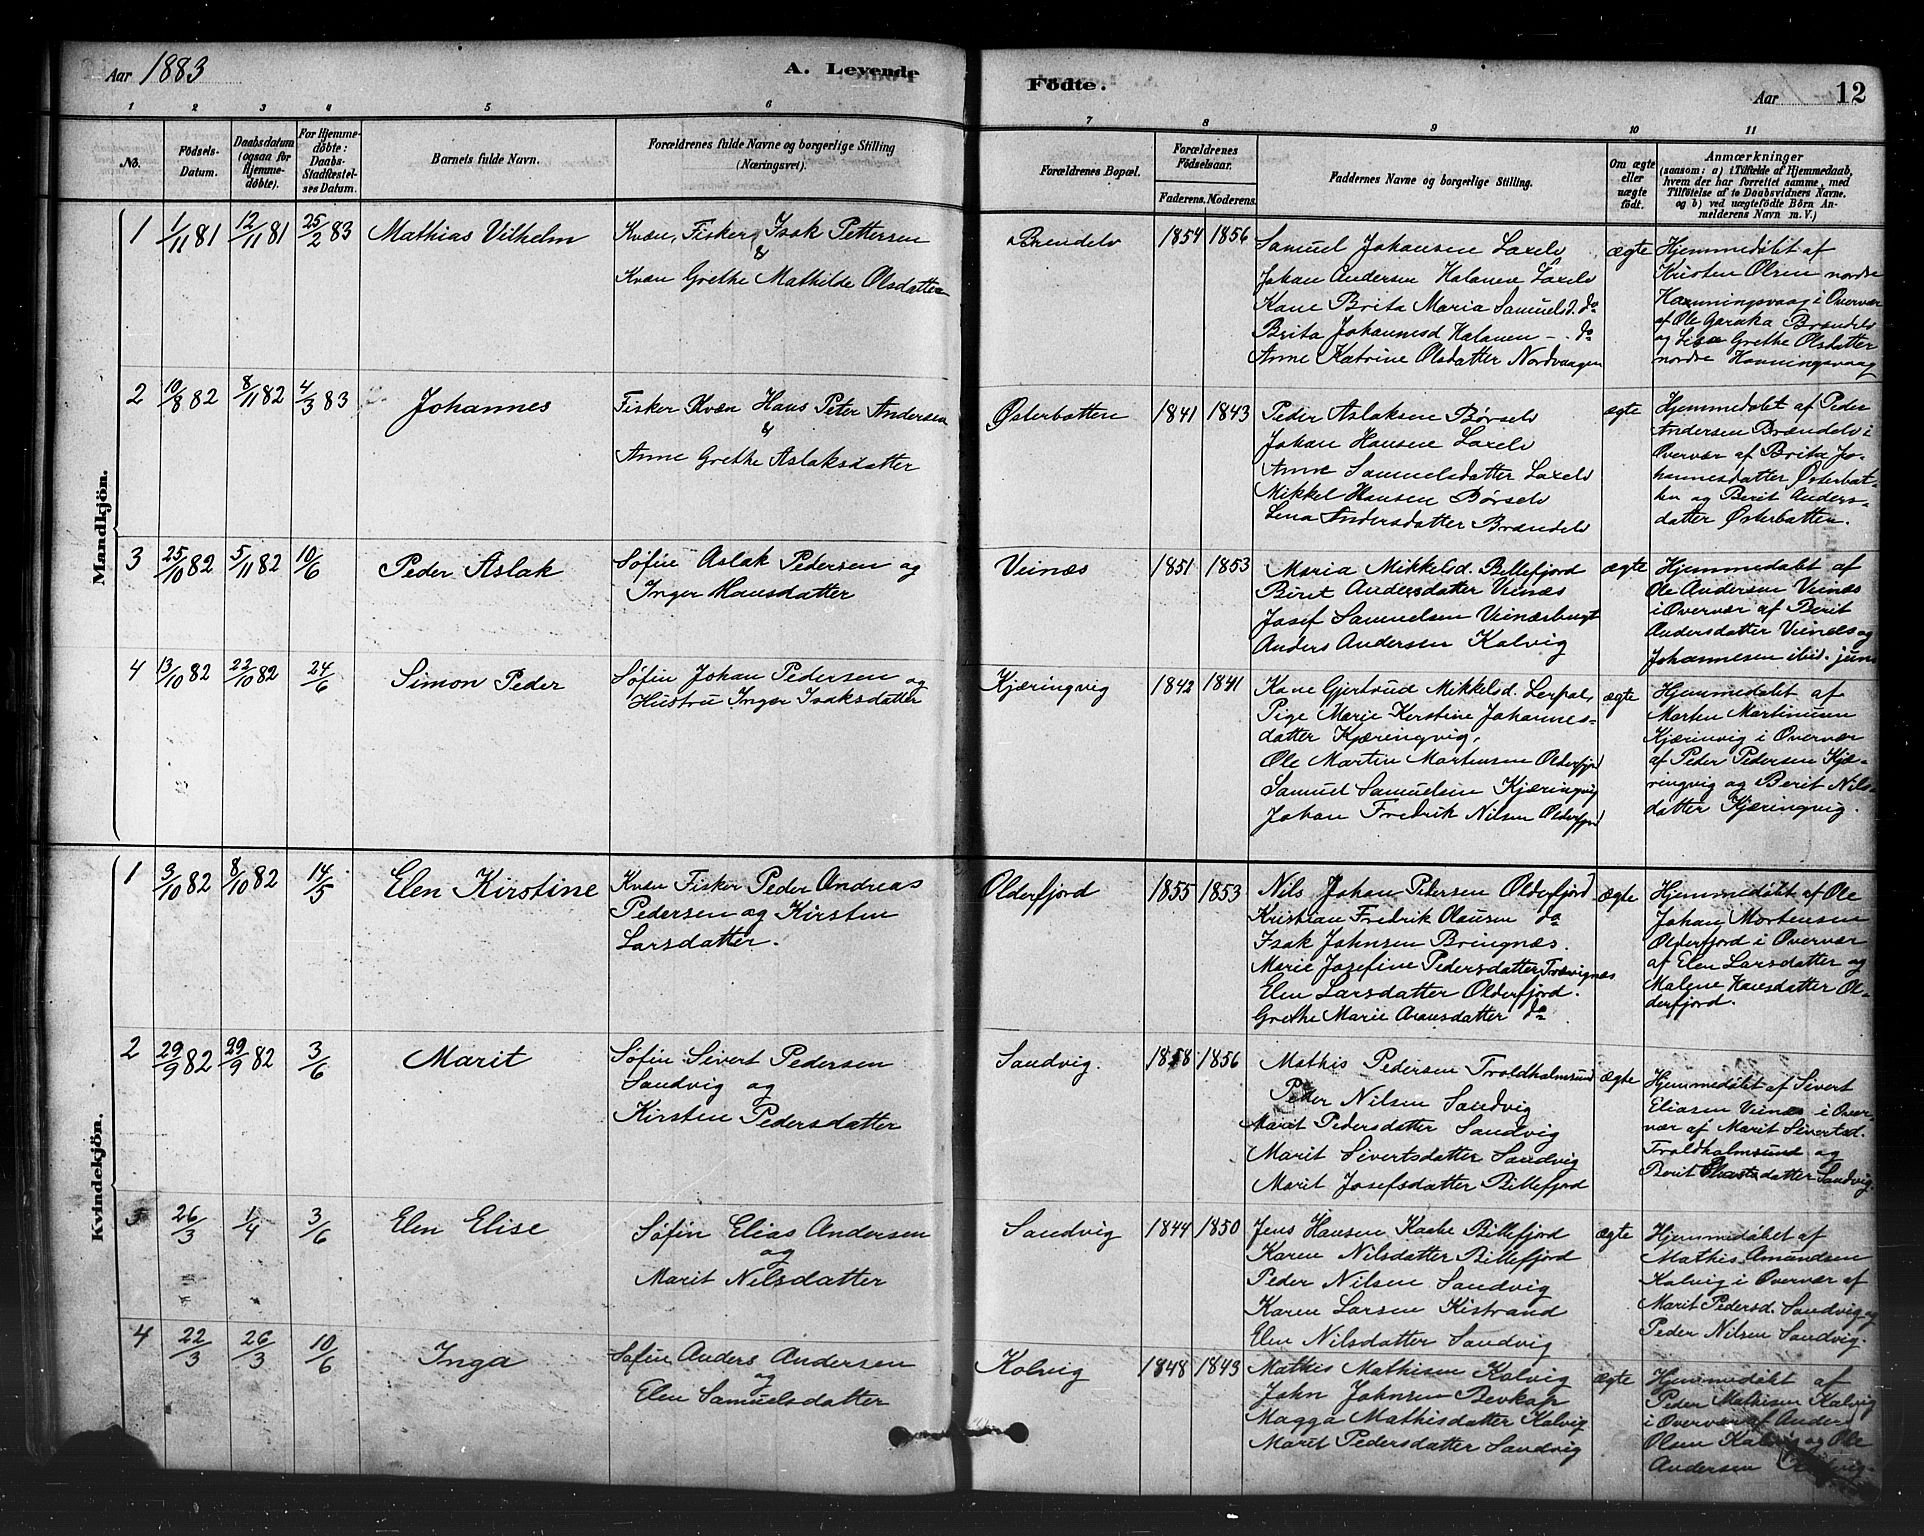 Aar 1883
A. Levende
Fødte.
Aar
12
1 2 3 4 5 6 7 8 9 10 11
No.
Fødsels-
Datum.
Daabsdatum
(ogsaa for
Hjemme-
døbte).
For Hjemme-
døbte:
Daabs-
Stadfæstel-
ses Datum.
Barnets fulde Navn.
Forældrenes fulde Navne og borgerlige Stilling
(Næringsvei).
Forældrenes Bopæl.
Forældrenes
Fødselsaar.
Faderens. Moderens.
Faddernes Navne og borgerlige Stilling.
Om ægte
eller
uægte
født.
Anmærkninger
(saasom: a) i Tilfælde af Hjemmedaab,
hvem der har forrettet samme, med
Tilføielse af to Daabsvidners Navne.
og b) ved uægtefødte Børn An-
melderens Navn m. V.)
Mandkjön.
1 1/11 81 12/11 81 25/2 83 Mathias Vilhelm
Kvæn, Fisker, Isak Pettersen
&
Kvæn Grethe Mathilde Olsdatter
Brendelv 1854 1856
Samuel Johansen Laxelv
Johan Andersen Halonen Laxelv
Kone Brita Maria Samuelsd. do
Brita Johannesd Halonen - . do
Anne Katrine Olsdatter Nordvaagen
ægte
Hjemmedøbt af
Kristen Olsen nordre
Honningsvaag i Overvær
af Ole Garaka Brændelv
og Lisa Grethe Olsdatter
nordre Honningsvaag
2 10/8 82 8/11 82 4/3 83 Johannes
Fisker Kvæn Hans Peter Andersen
&
Anne Grethe Aslaksdatter
Østerbotten 1841 1843
Peder Aslaksen Børselv
Johan Hansen Laxelv
Anne Samuelsdatter Laxelv
Mikkel Hansen Børselv
Lena Andersdatter Brændelv
ægte
Hjemmedøbt af Peder
Andersen Brændelv i
Overvær af Brita Jo-
hannesdatter Østerbot-
ten og Berit Anders-
datter Østerbotten.
3 25/10 82 5/11 82 10/6 Peder Aslak
Søfin Aslak Pedersen og
Inger Hansdatter
Veinæs 1851 1853
Maria Mikkelsd. Billefjord
Berit Andersdatter Veinæs
Josef Samuelsen Veinæsbugt
Anders Andersen Kolvig
ægte
Hjemmedøbt af
Ole Andersen Veinæs
i Overvær af Berit
Andersdatter Veinæs og
Johannesen ibid. jun.
4 13/10 82 22/10 82 24/6 Simon Peder
Søfin Johan Pedersen og
Hustru Inger Isaksdatter
Kjæringvig 1842 1841
Kone Gjertrud Mikkelsd. Lerpol,
Pige Marie Kerstine Johannes-
datter Kjæringvig,
Ole Morten Mortensen Olderfjord
Samuel Samuelsen Kjæringvig
Johan Fredrik Nilsen Olderfjord
ægte
Hjemmedøbt af
Morten Martinusen
Kjærinvig i Overvær
af Peder Pedersen Kjæ-
ringvig og Berit Nils-
datter Kjæringvig.
Kvindekjön.
1 3/10 82 8/10 82 14/5 Elen Kirstine
Kvæn Fisker Peder Andreas
Pedersen og Kirsten
Larsdatter.
Olderfjord 1855 1853
Nils Johan Petersen Olderfjord
Kristian Fredrik Olausen do
Isak Johnsen Bringnæs.
Marie Josefine Pedersdatter Trævignæs
Elen Larsdatter Olderfjord.
Grethe Marie Hansdatter do
ægte
Hjemmedøbt af Ole
Johan Mortensen
Olderfjord i Overvær
af Elen Larsdatter og
Malene Hansdatter Ol-
derfjord.
2 29/9 82 29/9 82 3/6 Marit
Søfin Sivert Pedersen
Sandvig og
Kirsten Pedersdatter
Sandvig. 1858 1856
Mathis Pedersen Troldholmsund
Peder Nilsen Sandvig
Marit Pedersdatter Sandvig
Marit Sivertsdatter Sandvig
Marit Josefsdatter Billefjord
ægte
Hjemmedøbt af Sivert
Eliasen Veinæs i Over-
vær af Marit Sivertsd.
Troldholmsund og
Berit datter Sandvig.
3 26/3 1/4 3/6 Elen Elise
Søfin Elias Andersen
og
Marit Nilsdatter
Sandvig 1844 1850
Jens Hansen Kaabe Billefjord
Karen Nilsdatter Billefjord
Peder Nilsen Sandvig
Karen Larsen Kistrand
Elen Nilsdatter Sandvig
ægte
Hjemmedøbt af
Mathis Amundsen
Kolvig i Overvær af
Marit Pedersd. Sandvig og
Peder Nilsen Sandvig.
4 22/3 26/3 10/6 Inga
Søfin Anders Andersen
og
Elen Samuelsdatter
Kolvig 1848 1843
Mathis Mathisen Kolvig
John Johnsen Bevkop
Magga Mathisdatter Kolvig
Marit Pedersdatter Sandvig
ægte
Hjemmedøbt af
Peder Mathisen Kolvig
i Overvær af Anders
Olsen Kolvig og Ole
Andersen Kolvig.